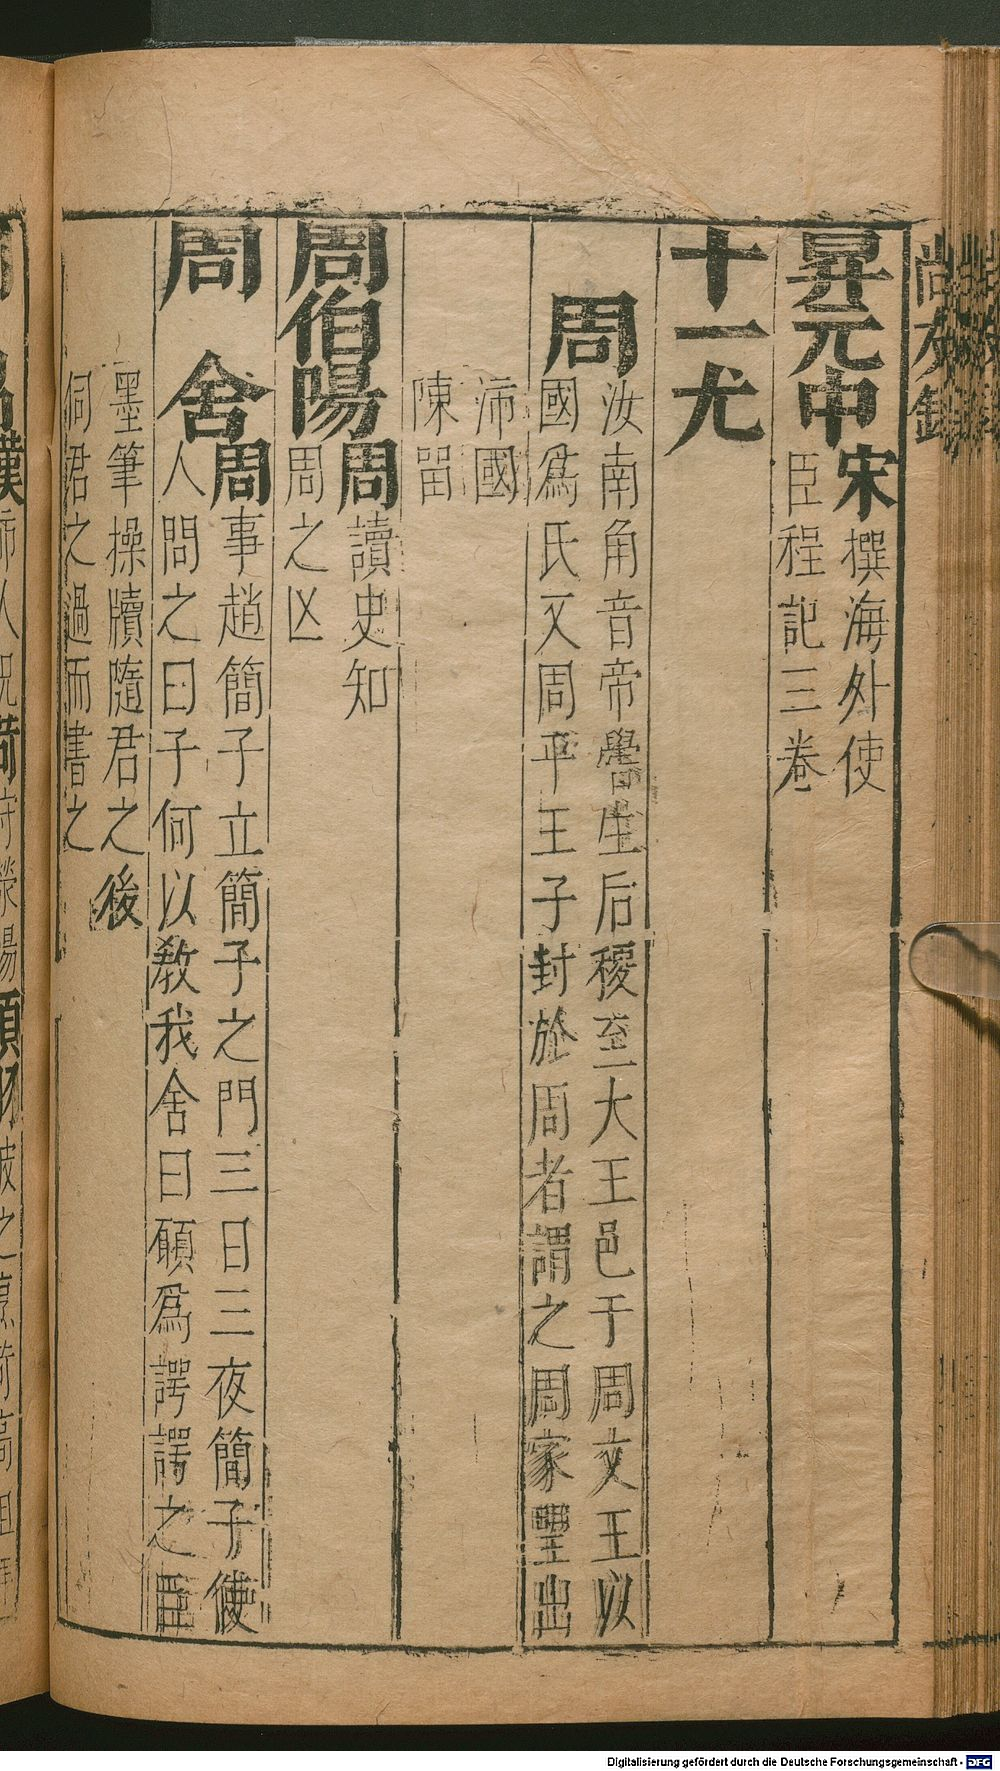 昇元中宋撰海外使
臣程記三卷
十一尤
周
汝南角音帝嚳生后稷至大王邑于周文王以
國為氏又周平王子封於周者謂之周家望出
沛國
陳留
周伯陽周讀史知
周之亡
周舍周事趙簡子立簡子之門三日三夜簡子使
人問之曰子何以敎我舍曰願為諤諤之臣
墨筆操牘隨君之後
伺君之過而書之
Digitalisierung gefördert durch die Deutsche Forschungsgemeinschaft - DFG